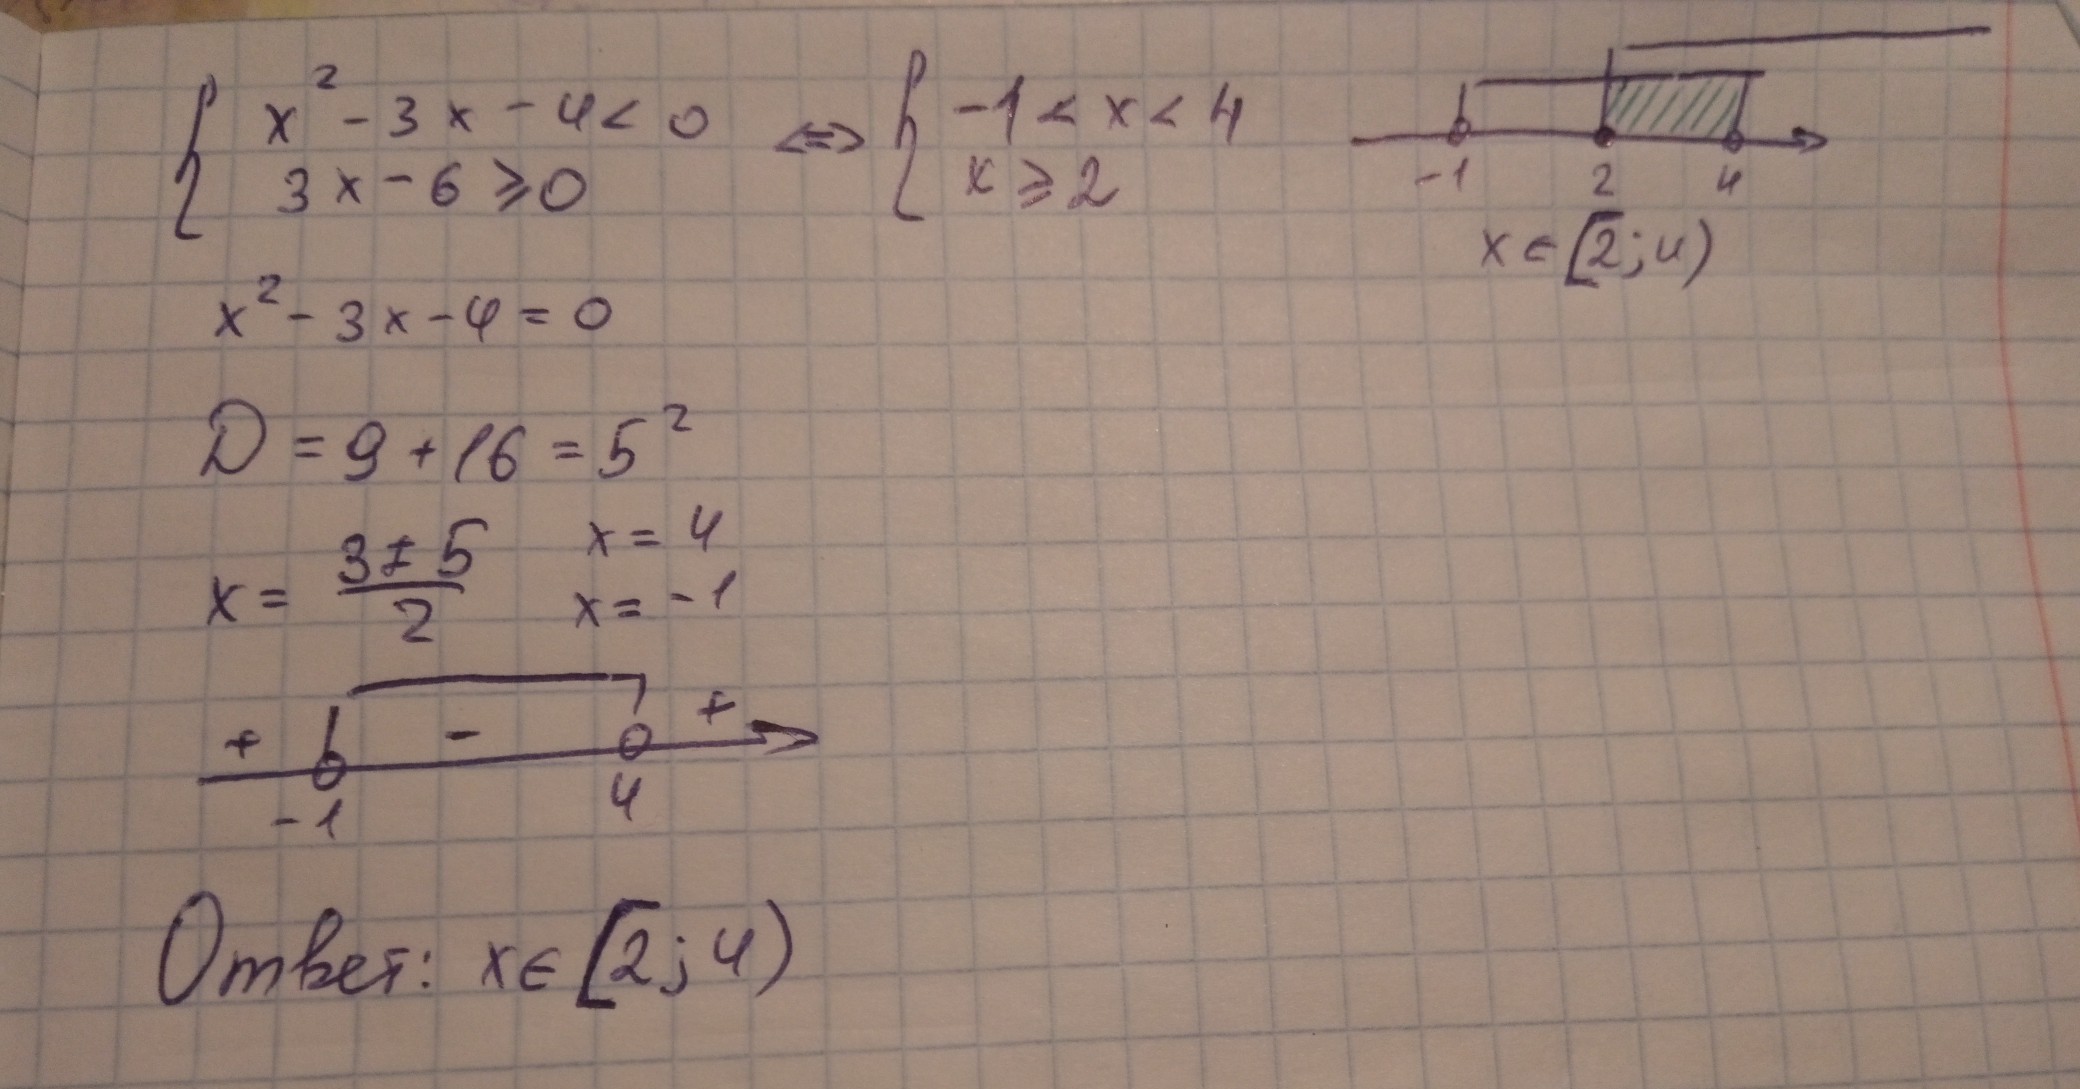 x² - 3x - 4 < 0 <=> -1 < x < 4
3x - 6 ⩾ 0 x ⩾ 2
-1 2 4
x ∈ [2; 4)
x² - 3x - 4 = 0
D = 9 + 16 = 5²
x = (3 ± 5)/2 x = 4
x = -1
+ - +
-1 4
Ответ: x ∈ [2; 4)